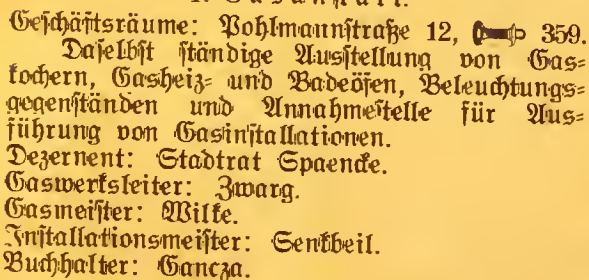 Geschäftsräume: Pohlmannstraße 12, 359.
Daselbst ständige Ausstellung von Gas=
kochern, Gasheiz= und Badeöfen, Beleuchtungs=
gegenständen und Annahmestelle für Aus=
führung von Gasinstallationen.
Dezernent: Stadtrat Spaencke.
Gaswerksleiter: Zwarg.
Gasmeister: Wilke.
Installationsmeister: Senkbeil.
Buchhalter: Gancza.